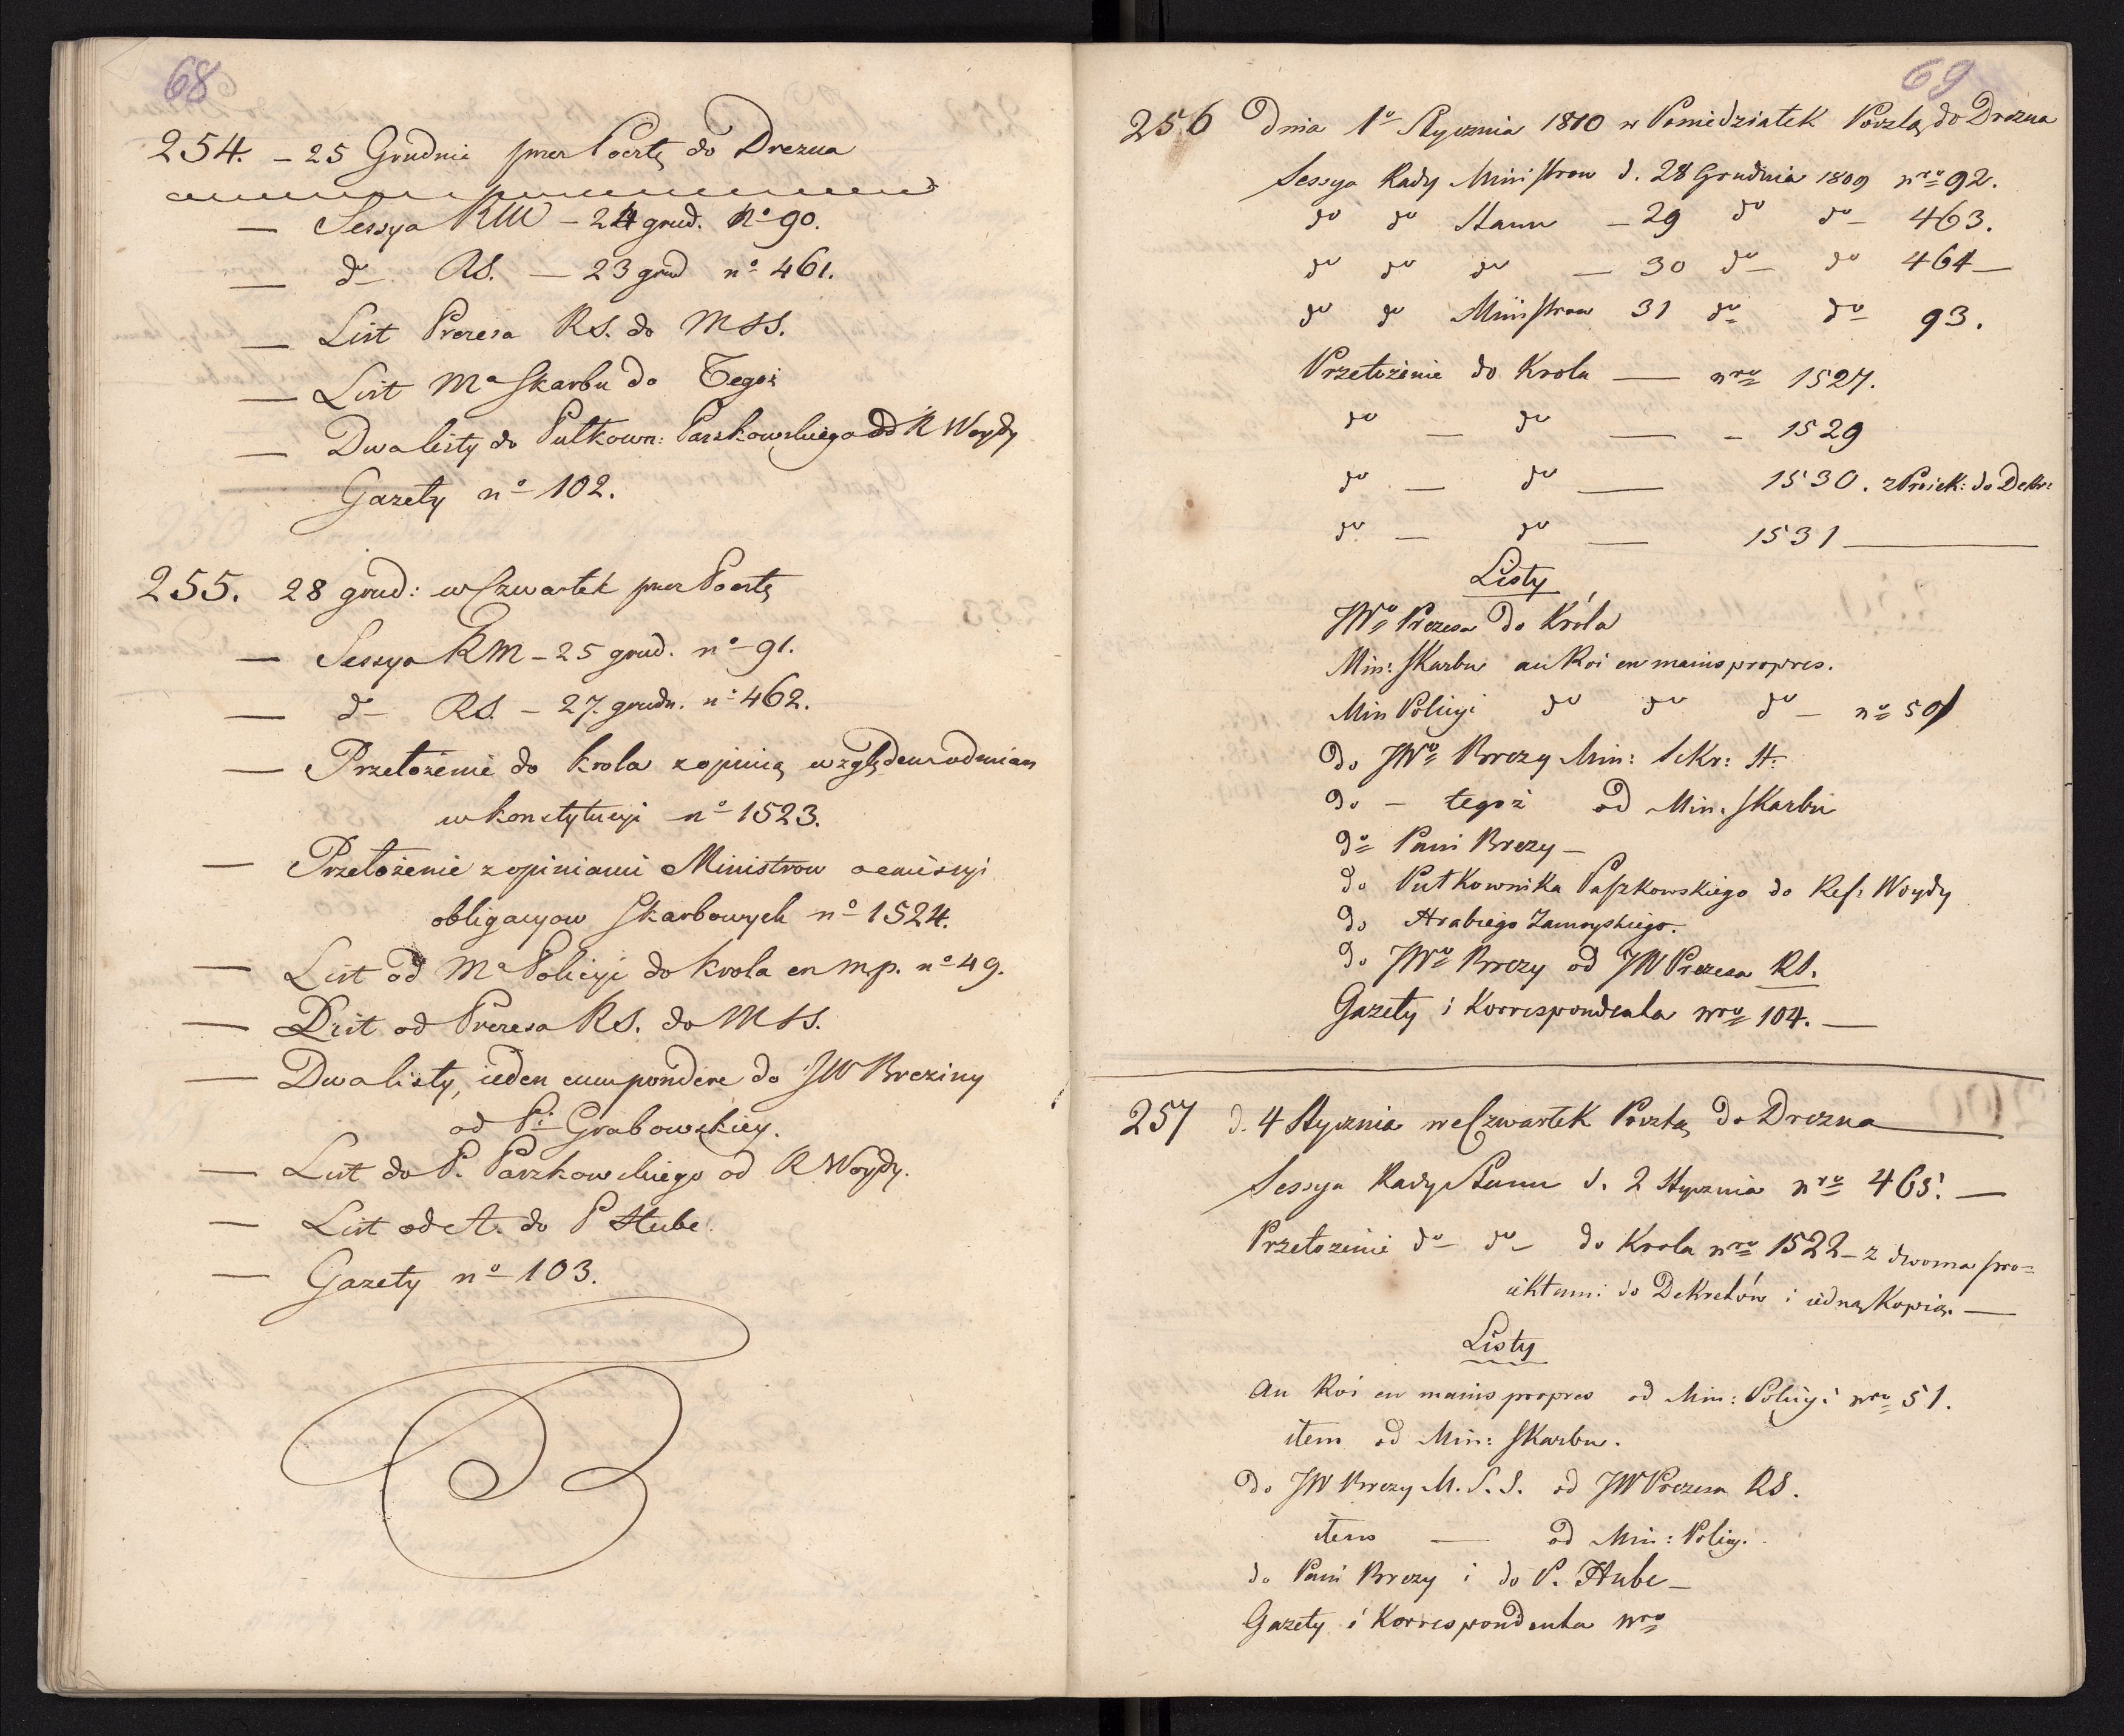 68
254. – 25 Grudnia przez Pocztę do Drezna
— Sessya RM – 24 grud. No 90.
— do RS. — 23 grud no 461.
— List Prezesa RS. do MSS.
— List Ma Skarbu do Tegoż
— Dwa listy do Pułkown: Paszkowskiego od R Woydy
Gazety no 102.
255. 28 grud: w Czwartek przez Pocztę
— Sessya RM – 25 grud. no 91.
— do RS. – 27. grudn. no 462.
— Przełożenie do Krola z opinią względem odmian
w konstytucyi no 1523.
— Przełożenie z opiniami Ministrow o emissyi
obligacyow Skarbowych no 1524.
— List od Ma Policyi do Krola en m.p. no 49.
— List od Prezesa RS. do MSS.
— Dwa listy, ieden cum pondere do JW Breziny
od Pi Grabowskiey.
— List do P. Paszkowskiego od R Woydy.
— List od A. do P Hube.
— Gazety no 103.
69
256 Dnia 1o Stycznia 1810 w Poniedziałek Pocztą do Drezna
Sessya Rady Ministrow d. 28 Grudnia 1809 nro 92.
do do Stanu – 29 do do – 463.
do do do — 30 do – do 464 —
do do Ministrow 31 do do 93.
Przełożenie do Krola — nro 1527.
do — do — – 1529
do — do — 1530. z Proiek: do Dekr:
do — do — 1531 —
Listy
JWo Prezesa do Króla
Min: Skarbu au Roi en mains propres.
Min Policyi do do do – no 50
do JWo Brezy Min: Sekr: St:
do – tegoż od Min. Skarbu
do Pani Brezy –
do Pułkownika Paszkowskiego do Ref: Woydy
do Hrabiego Zamoyskiego.
do JWo Brezy od JW Prezesa RS.
Gazety i Korrespondenta nro 104. —
257 d. 4 Stycznia we Czwartek Pocztą do Drezna
Sessya Rady Stanu d. 2 Stycznia nro 465. —
Przełożenie do – do – do Krola nro 1522 – z dwoma pro=
iektami do Dekretów i iedną Kopią. —
Listy
Au Roi en mains propres od Min: Policyi nro 51.
item od Min: Skarbu.
do JW Brezy M. S. S. od JW Prezesa RS.
item — od Min: Policyi.
do Pani Brezy i do P. Hube –
Gazety i Korrespondenta nro